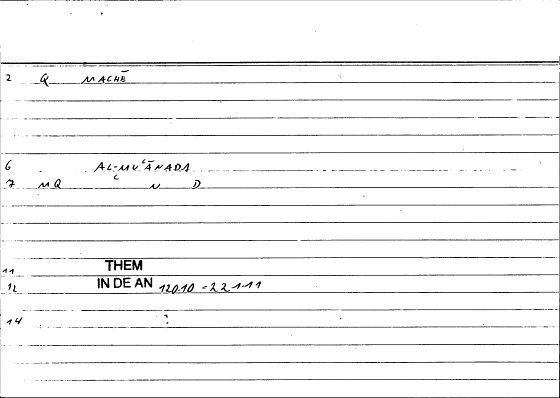 2 Q MACHĒ
6 AL-MUʿĀNADA
7 MQ ʿ N D
11 THEM
12 IN DE AN 120.10 - 221-11
14 ?